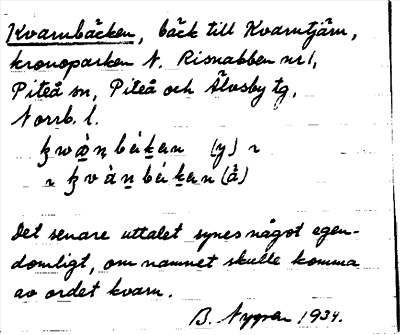 Kvarnbäcken, bäck till Kvarntjärn,
kronoparken N. Risnabben nr 1,
Piteå sn, Piteå och Älvsby tg,
Norrb. l.
(y) ~
~ (å)
Det senare uttalet synes något egen-
domligt, om namnet skulle komma
av ordet kvarn.
B. Nygren 1934.